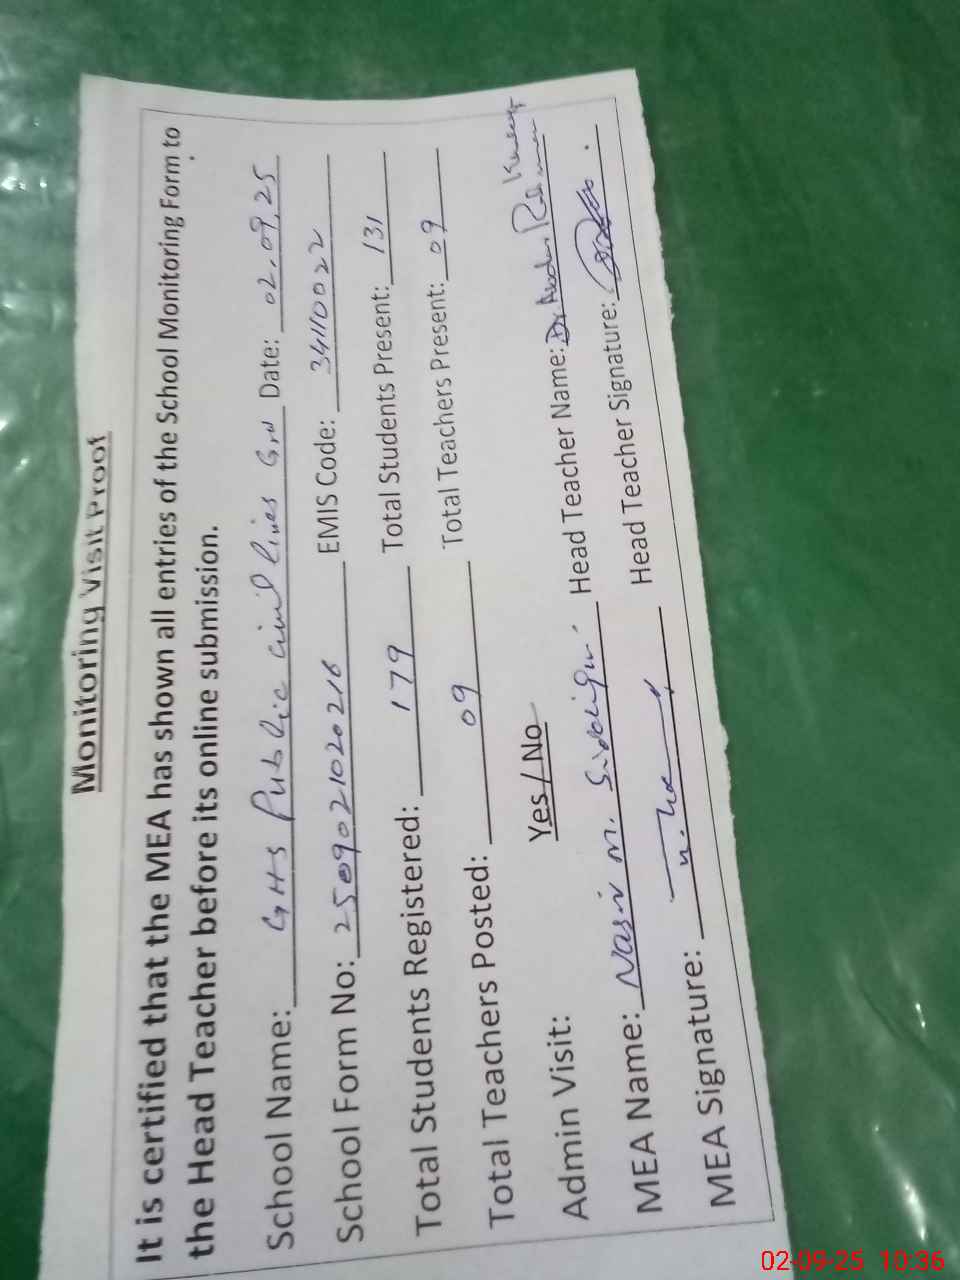 Monitoring Visit Proof
It is certified that the MEA has shown all entries of the School Monitoring Form to
the Head Teacher before its online submission.
School Name: GHS Public civil lines Grw Date: 02.09.25
School Form No: 2509021020216 EMIS Code: 34110022
Total Students Registered: 179 Total Students Present: 131
Total Teachers Posted: 09 Total Teachers Present: 09
Admin Visit: Yes / No
MEA Name: Nasir M. Head Teacher Name: Dr.
MEA Signature: Head Teacher Signature:
02-09-25 10:36